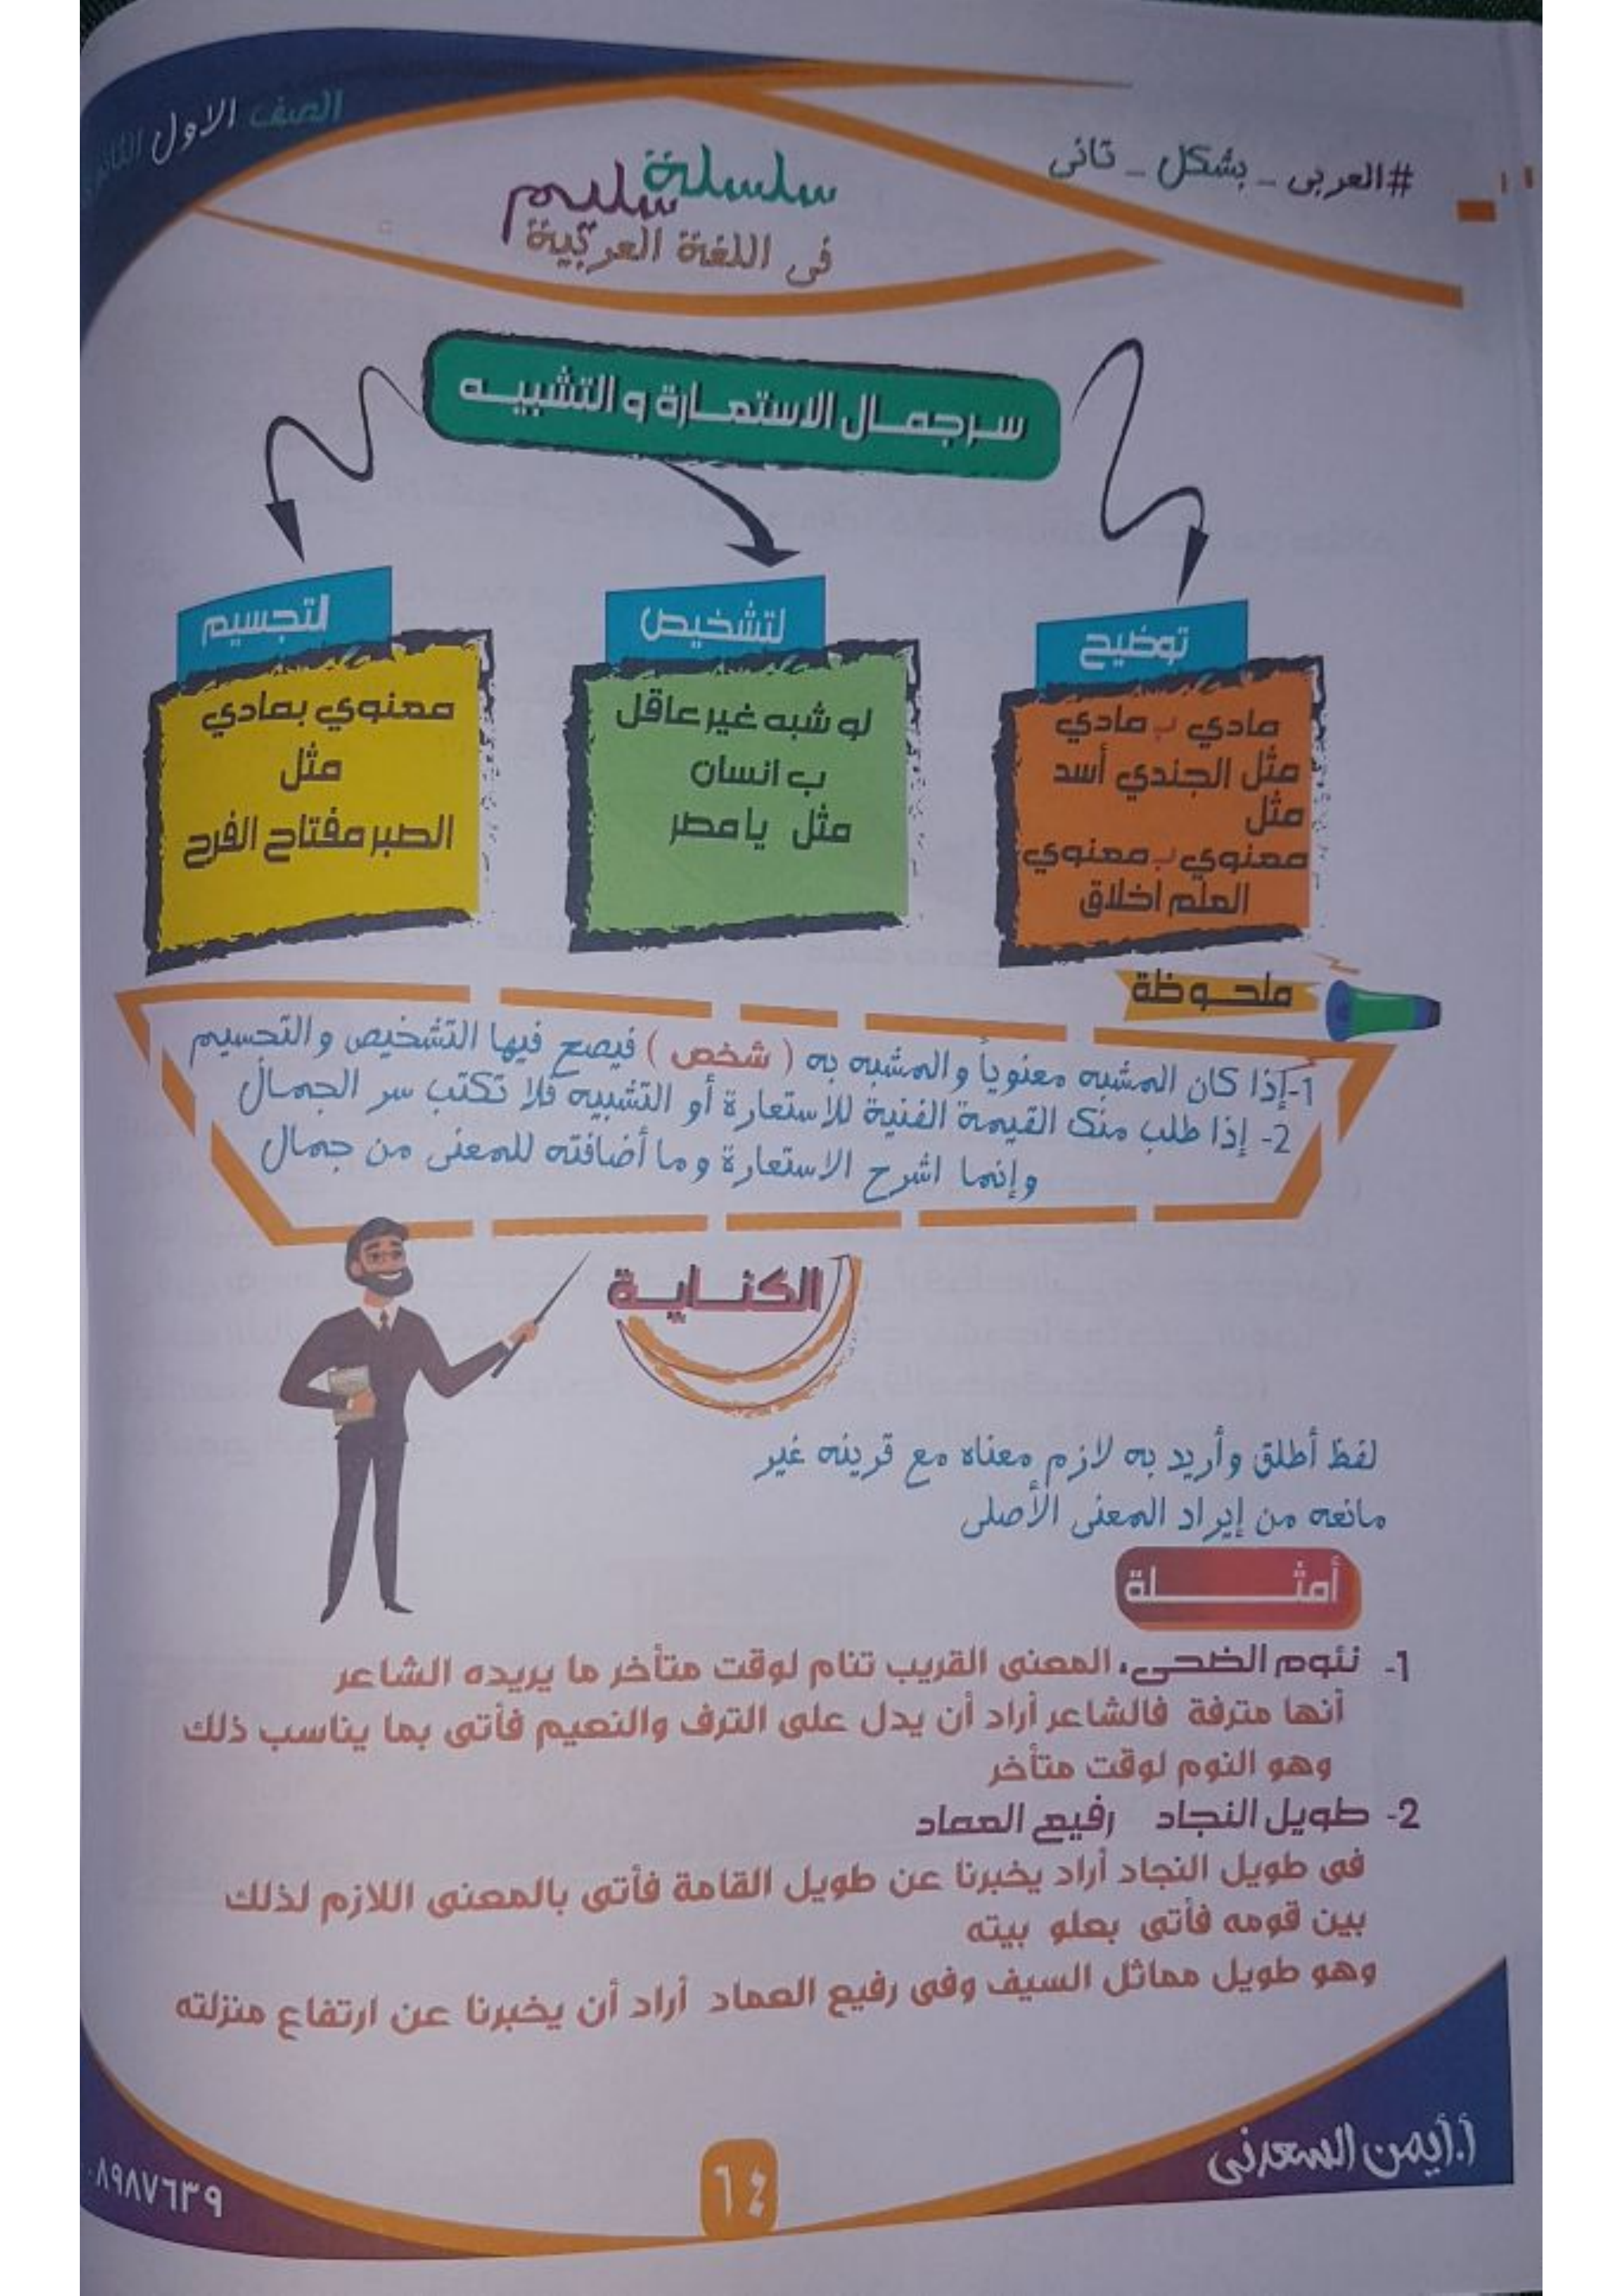 الصف الاول
#العربى _ بشكل _ تانى
سلسلة سليم
فى اللغة العربية
سر جمال الاستعارة و التشبيه
توضيح
مادي ب مادي
مثل الجندي أسد
مثل
معنوي ب معنوي
العلم اخلاق
لتشخيص
لو شبه غير عاقل
ب انسان
مثل يا مصر
لتجسيم
معنوي بمادي
مثل
الصبر مفتاح الفرح
ملحوظة
1-إذا كان المشبه معنوياً والمشبه به ( شخص ) فيصح فيها التشخيص والتجسيم
2- إذا طلب منك القيمة الفنية للاستعارة أو التشبيه فلا تكتب سر الجمال
وإنما اشرح الاستعارة وما أضافته للمعنى من جمال
الكناية
لفظ أطلق وأريد به لازم معناه مع قرينه غير
مانعه من إيراد المعنى الأصلى
أمثلة
1- نئوم الضحى، المعنى القريب تنام لوقت متأخر ما يريده الشاعر
أنها مترفة فالشاعر أراد أن يدل على الترف والنعيم فأتى بما يناسب ذلك
وهو النوم لوقت متأخر
2- طويل النجاد رفيع العماد
فى طويل النجاد أراد يخبرنا عن طويل القامة فأتى بالمعنى اللازم لذلك
بين قومه فأتى بعلو بيته
وهو طويل مماثل السيف وفى رفيع العماد أراد أن يخبرنا عن ارتفاع منزلته
أ.أيمن السعدنى
٦٤
٨٩٨٧٦٣٩